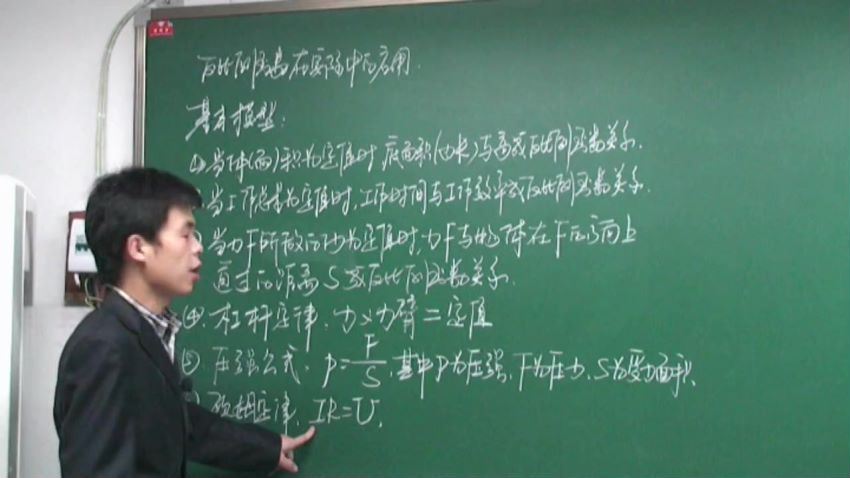 反比例函数在实际中的应用.
基本模型:
①当体(面)积为定值时,底面积(边长)与高成反比例函数关系.
当工作总量为定值时,工作时间与工作效率成反比例函数关系.
当力F所做的功为定值时,力F与物体在F的方向上
通过的距离S成反比例函数关系.
④.杠杆定律,力×力臂=定值
⑤.压强公式,P=F/S,其中P为压强,F为压力,S为受力面积.
欧姆定律,IR=U.